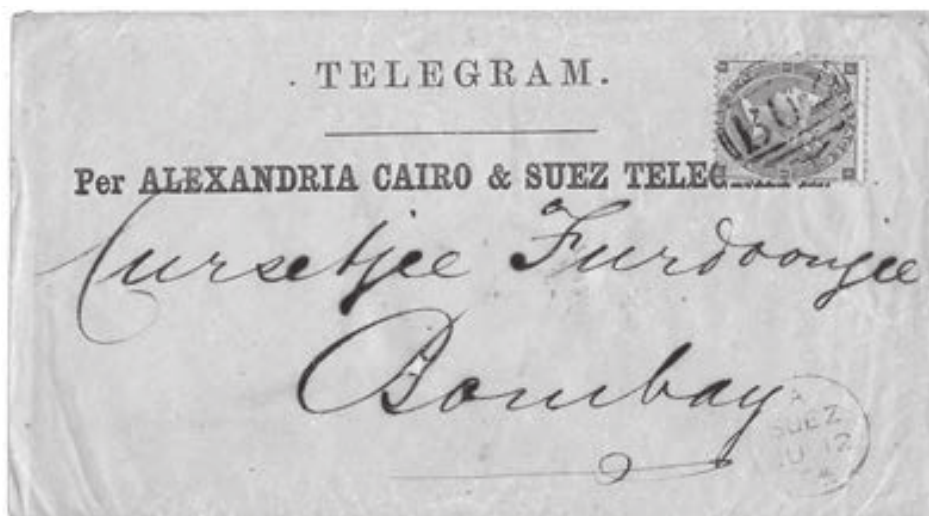 . TELEGRAM.
Per ALEXANDRIA CAIRO & SUEZ TELEGRAPH.
Cursetjee Furdoonjee
Bombay
A
SUEZ
12